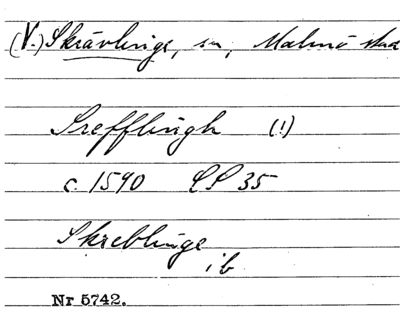 (V.) Skrävlinge, sn, Malmö stad
Srefflingh (!)
c. 1590 LP 35
Skreblinge
ib
Nr 5742.